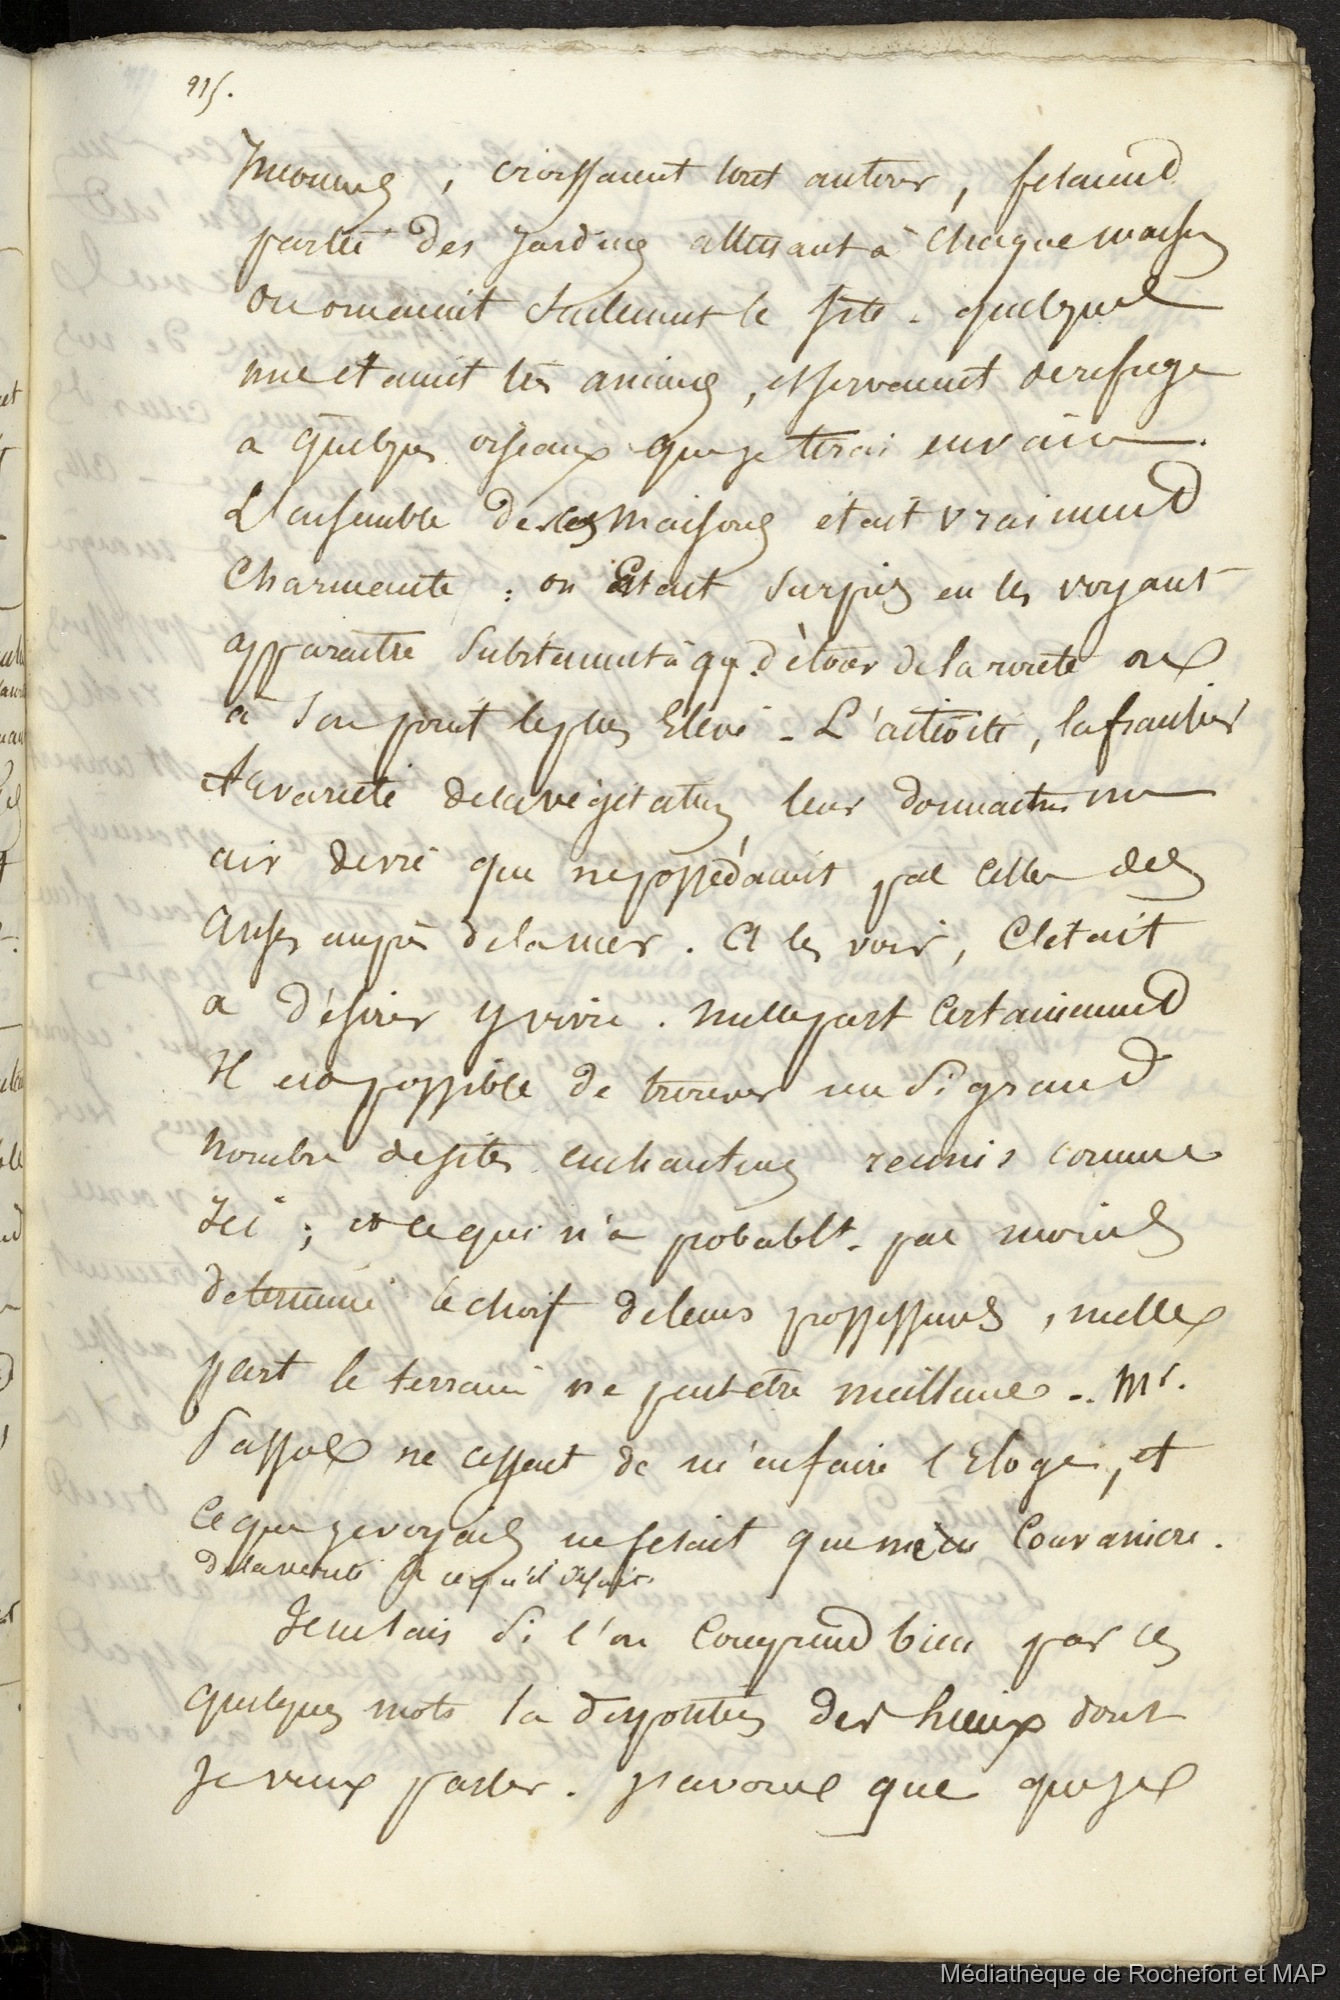 915.
Inconnus, croissaient tout autour, fesaient
partie des jardins attenant à chaque maison
ou ornaient seulement le site. quelques
une etaient très anciens, et servaient de refuge
a quelques oiseaux que je tirai en vain.
L'ensemble de ces maisons était vraiment
Charmante : on Etait surpris en les voyant
apparaitre subitement à qq. détour de la route ou
à son point le plus Elevé. L'activité, la fraicheur
et la varieté de la végétation leur donnaient un
air de vie que ne possédaient pas celles des
anses auprès de la mer. A les voir, C'était
a désirer y vivre. nulle part Certainement
Il est possible de trouver un si grand
nombre de sites enchanteurs reunis comme
Ici ; et ce qui n'a probablt. pas moins
determiné le choix de leurs possesseurs, nulle
part le terrain ne peut etre meilleur. Mr.
ne cessait de m'en faire l'Eloge, et
Ce que je voyais ne fesait que me Convaincre.
de la verité de ce qu'il disait.
Je ne sais si l'on Comprend bien par ces
quelques mots la disposition des lieux dont
Je veux parler. J'avoue que que je
Médiathèque de Rochefort et MAP